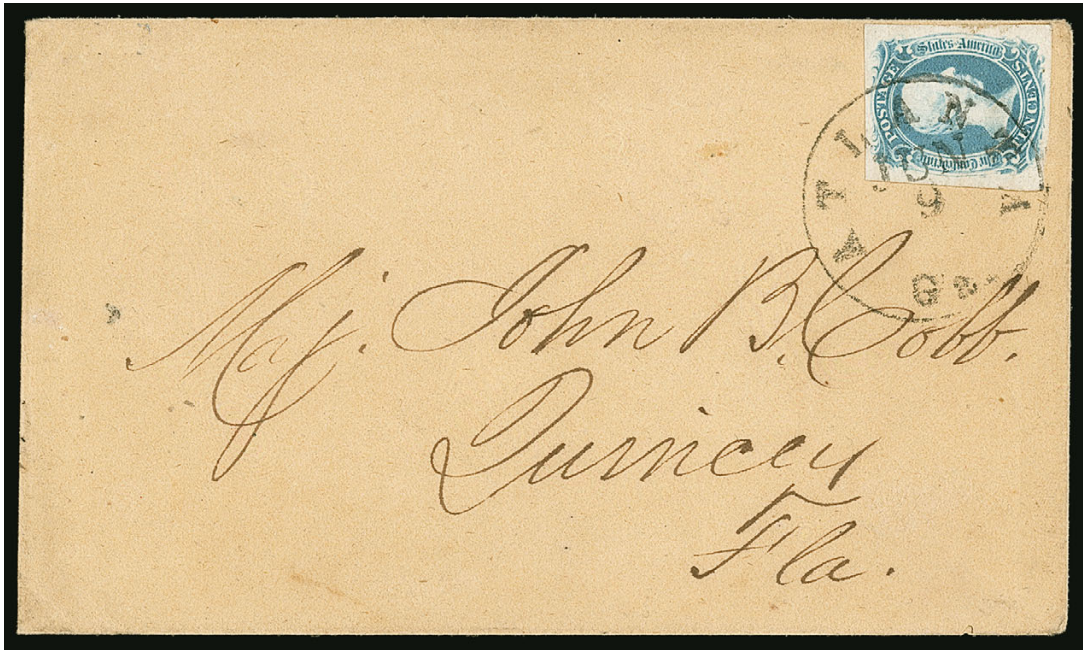 POSTAGE
The Confederate
States America
TEN CENTS
ATLANTA
Ga.
JUN
9
Maj. John B. Cobb.
Quincey
Fla.